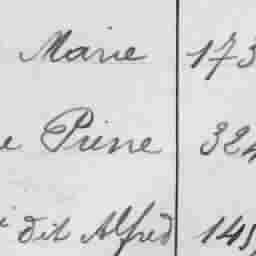 Marie 173
e Pierre 324
i dit Alfred 145